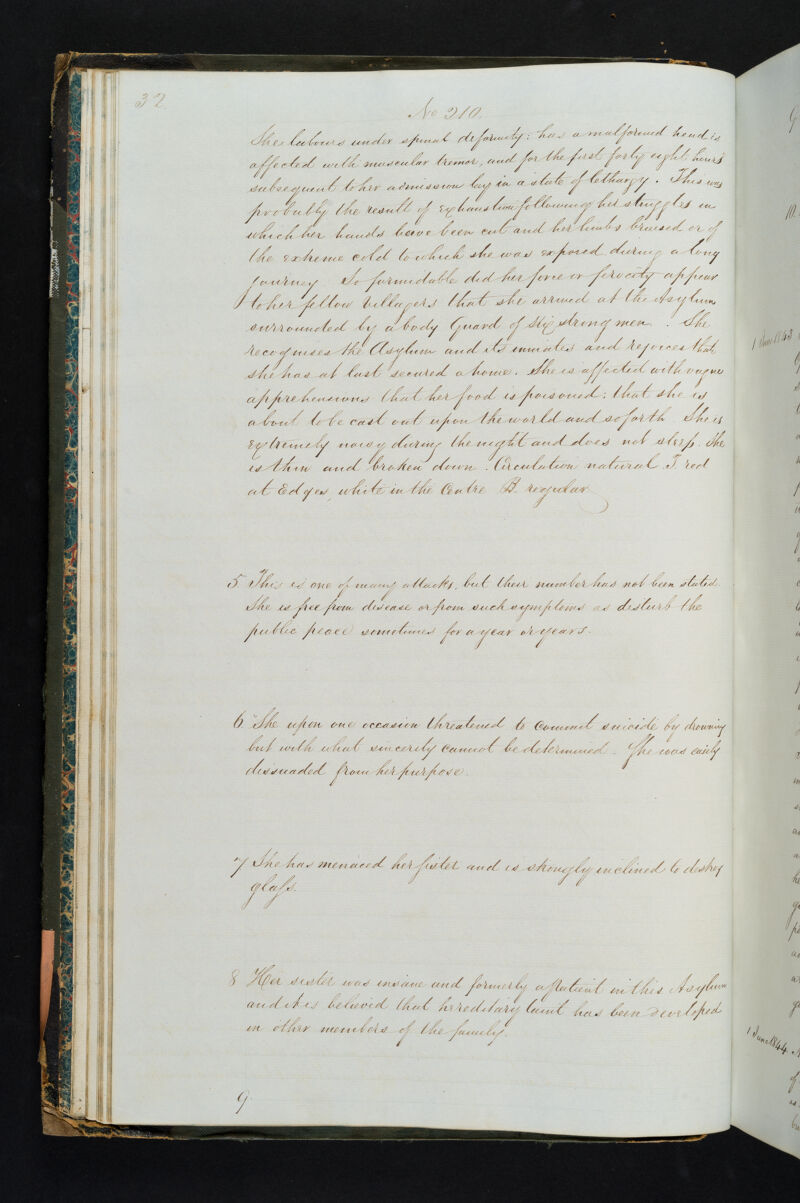 32
No 210.
She labours under spinal deformity: has a malformed head is
affected with muscular tremor, and for the first forty eight hours
subsequent to her admission lay in a state of lethargy. This was
probably the result of exhaustion following her struggles in
which her hands have been cut and her limbs bruised or of
the extreme cold to which she was exposed during a long
journey. So formidable did her force or ferocity appear
to her fellow villagers that she arrived at the Asylum
surrounded by a body Guard of six strong men. She
recognises the Asylum and its inmates and rejoices that
she has at last secured a home. She is affected with vague
apprehensions that her food is poisoned; that she is
about to be cast out upon the world and so forth. She is
extremely noisy during the night and does not sleep. She
is thin and broken down. Circulation natural T. red
at Edges, white in the Centre B. regular
5. This is one of many attacks, but their number has not been stated.
She is free from disease or from such symptoms as disturb the
public peace sometimes for a year or years.
6 She upon one occasion threatened to commit suicide by drowning
but with what sincerity cannot be determined - She was easily
dissuaded from her purpose.
7 She has menaced her sister and is strongly inclined to destroy
glass.
8 Her sister was insane and formerly a patient in this Asylum
and it is believed that hereditary taint has been developed
in other members of the family.
9
1 June 1843
1 June 1844